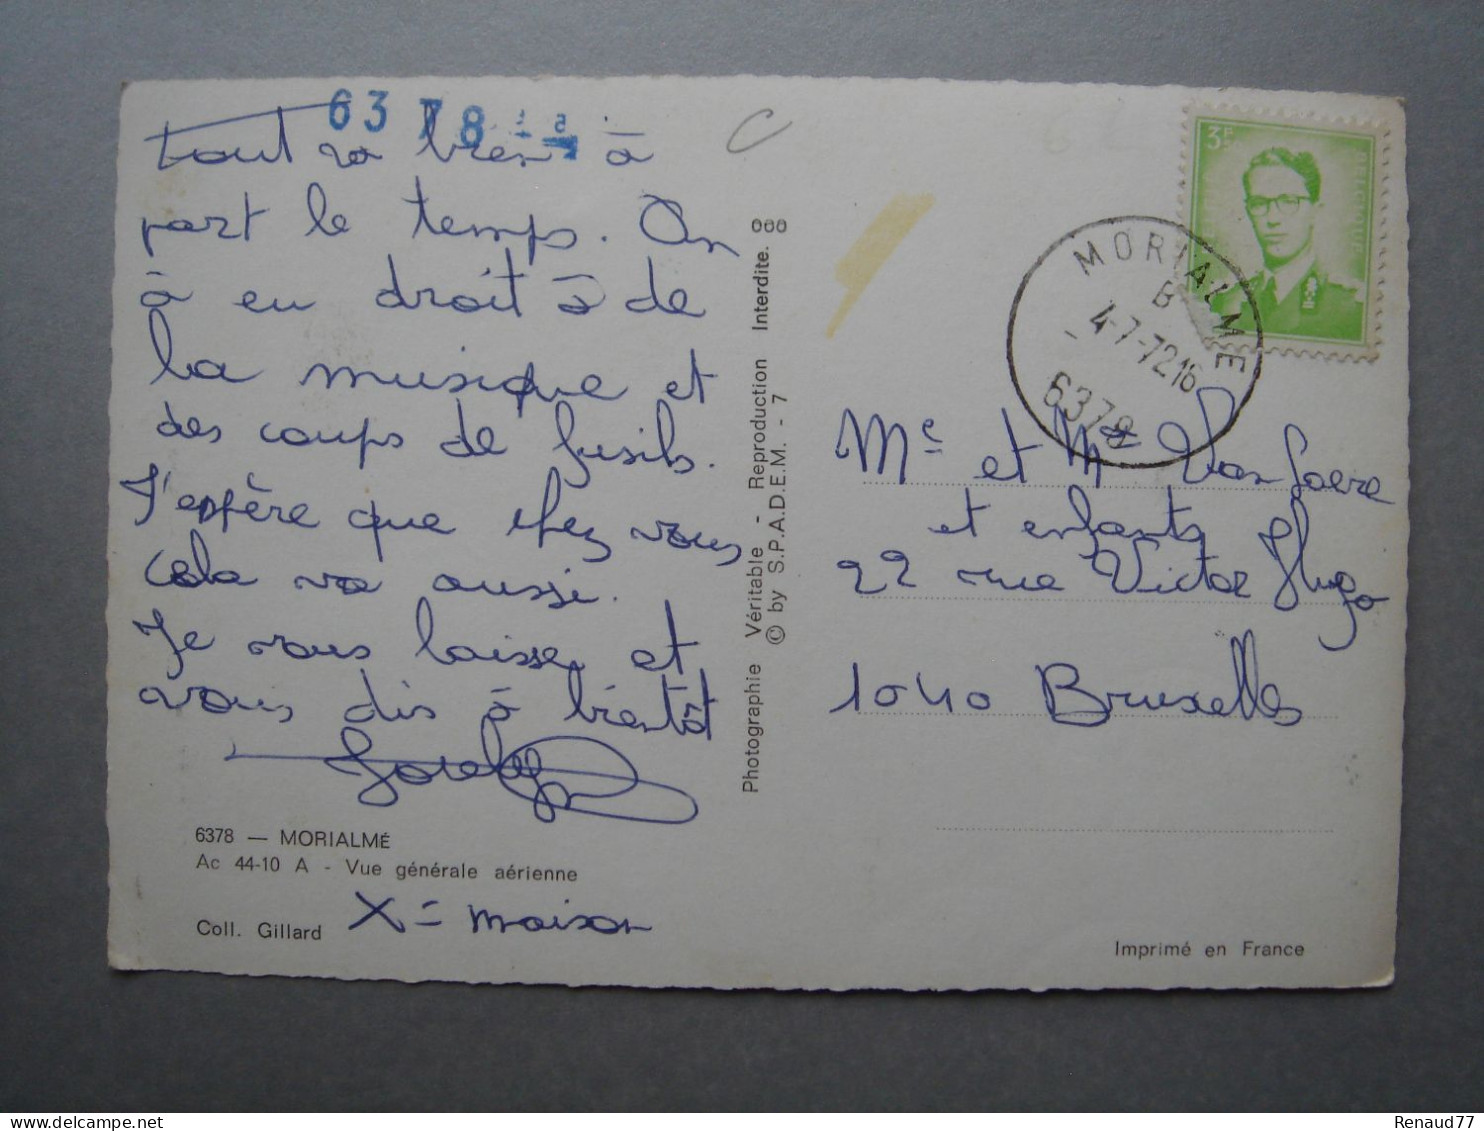 6378
tout va bien à
part le temps. On
à eu droit à de
la musique et
des coups de fusils.
J'espère que chez vous
cela va aussi.
Je vous laisse et
vous dis à bientôt
6378 — MORIALMÉ
Ac 44-10 A - Vue générale aérienne
Coll. Gillard
X = maison
Photographie Véritable - Reproduction Interdite.
© by S.P.A.D.E.M. - 7
3F
BELGIQUE
MORIALME
B
4-7-72 16
6378
Mr et Me Van
et enfants
22 rue Victor Hugo
1040 Bruxelles
Imprimé en France
Renaud77